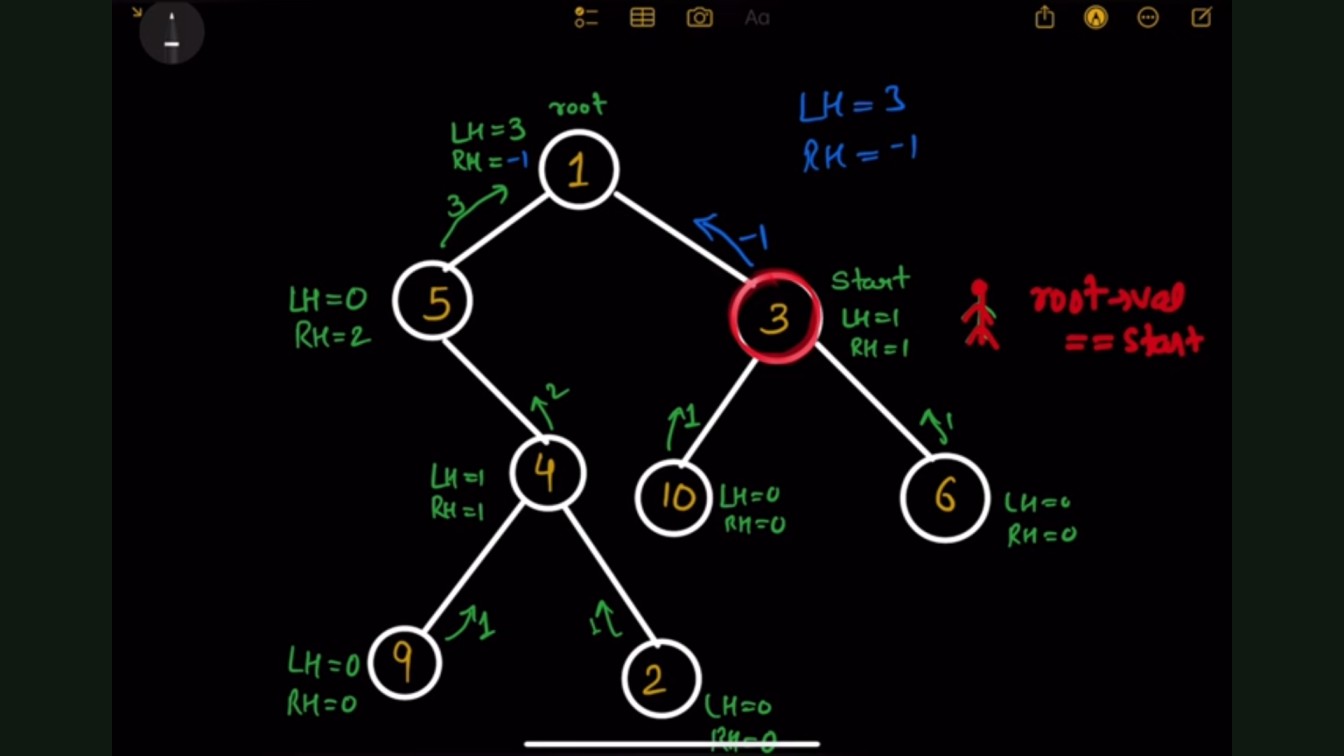 Aa
root
LH = 3
RH = -1
LH = 3
RH = -1
1
3
-1
LH = 0
RH = 2
5
3
Start
LH = 1
RH = 1
root→val
== start
2
1
1
LH = 1
RH = 1
4
10
LH = 0
RH = 0
6
LH = 0
RH = 0
1
1
LH = 0
RH = 0
9
2
LH = 0
RH = 0